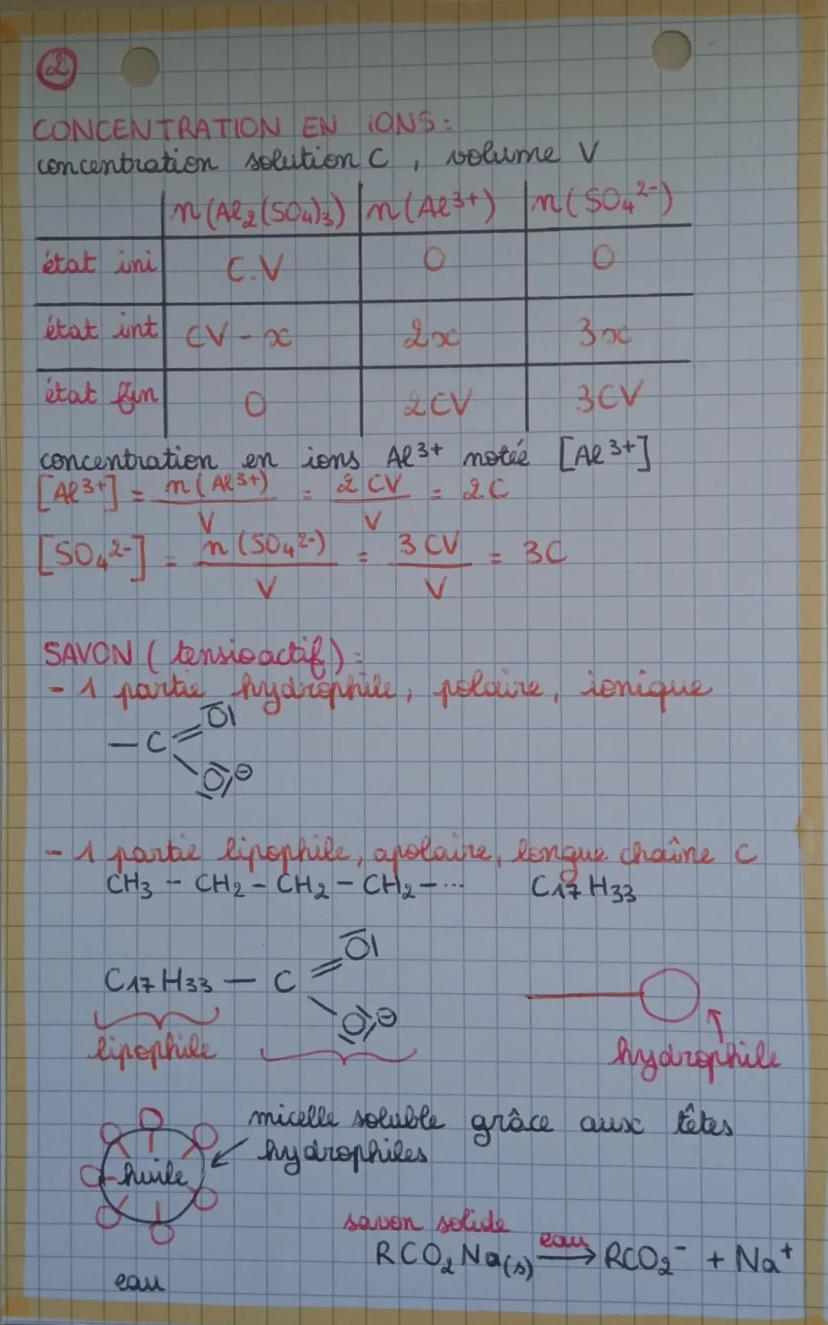 2
CONCENTRATION EN IONS :
concentration solution C , volume V
n(Al₂(SO₄)₃) n(Al³⁺) n(SO₄²⁻)
état ini C.V 0 0
état int CV - x 2x 3x
état fin 0 2CV 3CV
concentration en ions Al³⁺ notée [Al³⁺]
[Al³⁺] = n(Al³⁺)/V = 2CV/V = 2C
[SO₄²⁻] = n(SO₄²⁻)/V = 3CV/V = 3C
SAVON (tensioactif) :
- 1 partie hydrophile, polaire, ionique
O
- C
O⊖
- 1 partie lipophile, apolaire, longue chaîne C
CH₃ - CH₂ - CH₂ - CH₂ - ... C₁₇H₃₃
O
C₁₇H₃₃ - C
O⊖
lipophile hydrophile
micelle soluble grâce aux têtes
hydrophiles
huile
savon solide
RCO₂Na(s) eau→ RCO₂⁻ + Na⁺
eau